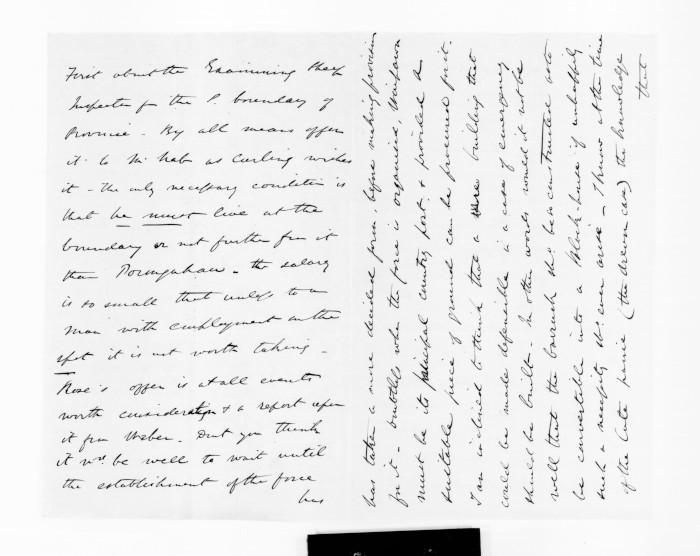 First about the Examining Sheep
Inspector for the S. boundary of
Province - By all means offer
it to Mr as Curling wishes
it - the only necessary condition is
that he must live at the
boundary or not further from it
than Porangahau - the salary
is so small that unless to a
man with employment on the
spot it is not worth taking -
Rose's offer is at all events
worth consideration & a report upon
it from Weber - Dont you think
it wd. be well to wait until
the establishment of the force
has
has taken a more decided form, before making provision
for it - doubtless when the force is organised, Waipawa
must be its principal country post, & provided a
suitable piece of ground can be procured for it.
I am inclined to think that a building that
could be made defensible in a case of emergency
should be built - In other words would it not be
well that the barrack shd. be so constructed as to
be convertible into a Block-house if unhappily
such a necessity shd. ever arise - I know at the time
of the late panic (the drewn case) the knowledge
that